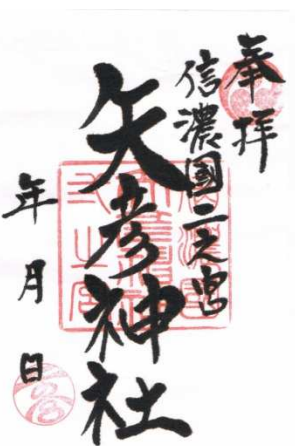 奉拝
信濃國二之宮
矢彦神社
年月日